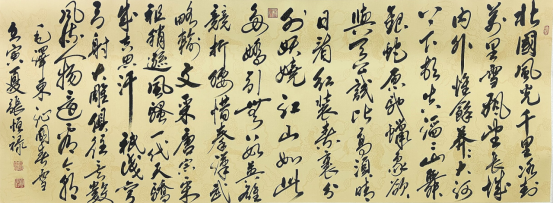 北國風光千里冰封
萬里雪飄望長城
内外惟餘莽莽大河
上下頓失滔滔山舞
銀蛇原馳蠟象欲
與天公試比高須晴
日看紅裝素裹分
外妖嬈江山如此
多嬌引無數英雄
競折腰惜秦皇漢武
略輸文采唐宗宋
祖稍遜風騷一代天驕
成吉思汗祗識彎
弓射大雕俱往矣數
風流人物還看今朝
毛澤東沁園春雪
壬寅夏張恒